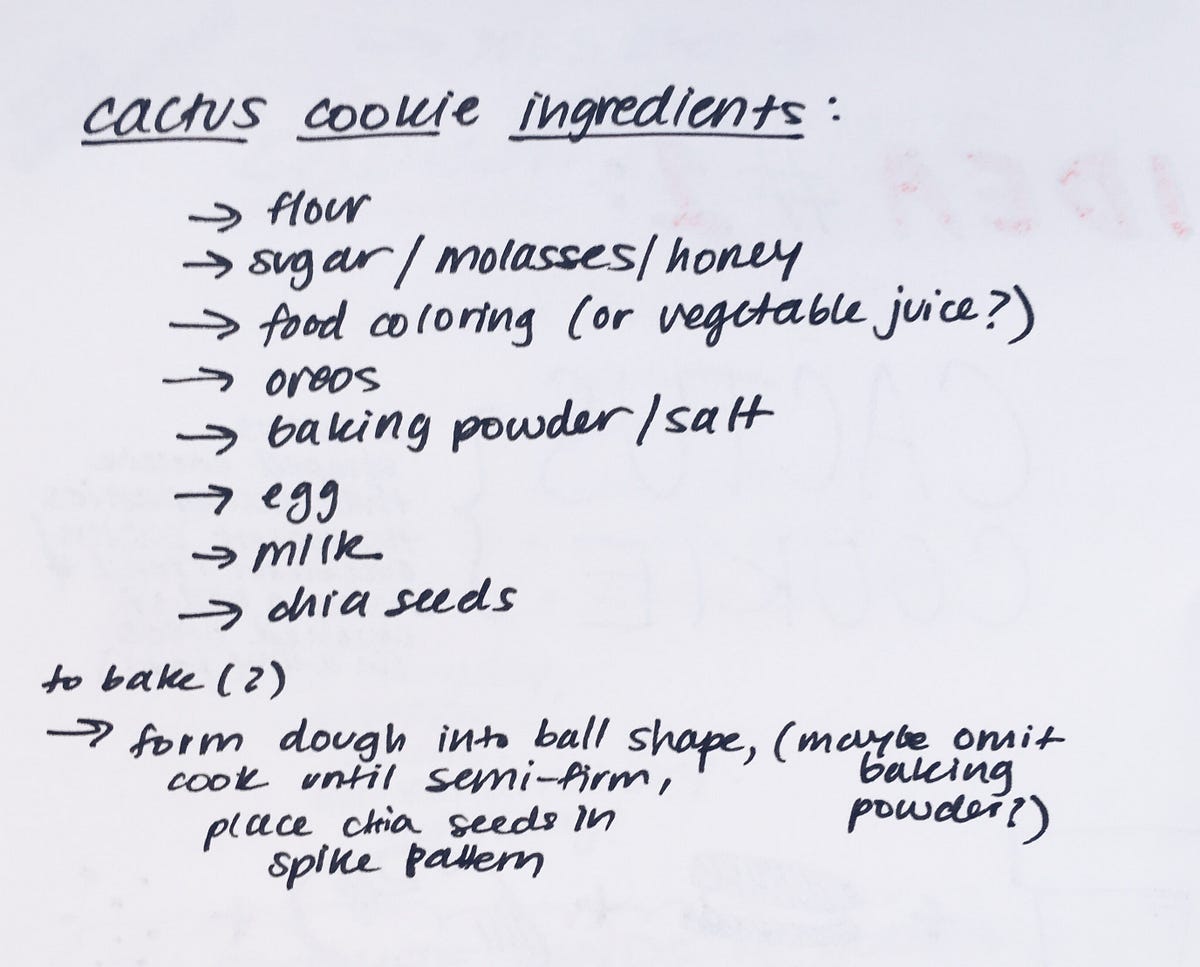 cactus cookie ingredients:
→ flour
→ sugar / molasses/honey
→ food coloring (or vegetable juice?)
→ oreos
→ baking powder/salt
→ egg
→ milk
→ chia seeds
to bake (?)
→ form dough into ball shape, (maybe omit
cook until semi-firm, baking
place chia seeds in powder?)
spike pattern